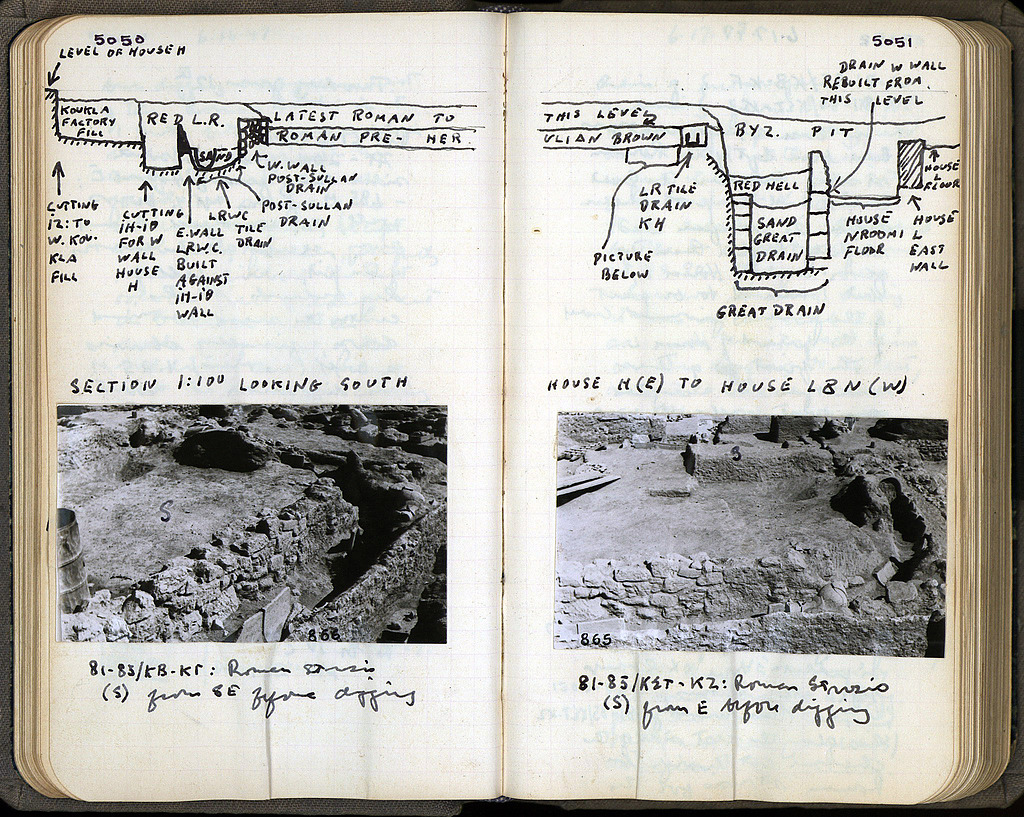 5050
LEVEL OF HOUSE H
KOUKLA
FACTORY
FILL
RED L.R.
SAND
LATEST ROMAN TO
ROMAN PRE-HER
W. WALL
POST-SULLAN
DRAIN
POST-SULLAN
DRAIN
CUTTING
ΙΖ: ΤΟ
W. KOU-
KLA
FILL
CUTTING
ΙΗ-ΙΘ
FOR W
WALL
HOUSE
H
E. WALL
L.R.W.C.
BUILT
AGAINST
ΙΗ-ΙΘ
WALL
L.R.W.C.
TILE
DRAIN
SECTION 1:100 LOOKING SOUTH
S
866
81-83/ΚΒ-ΚΓ: Roman
(S) from SE before digging
5051
DRAIN W WALL
REBUILT FROM
THIS LEVEL
THIS LEVEL
ULIAN BROWN
BYZ. PIT
RED HELL
SAND
GREAT
DRAIN
L.R TILE
DRAIN
ΚΗ
PICTURE
BELOW
HOUSE
FLOOR
HOUSE
N ROOM
FLOOR
HOUSE
L
EAST
WALL
GREAT DRAIN
HOUSE H(E) TO HOUSE LBN (W)
S
865
81-85/ΚΣΤ-ΚΖ: Roman
(S) from E before digging